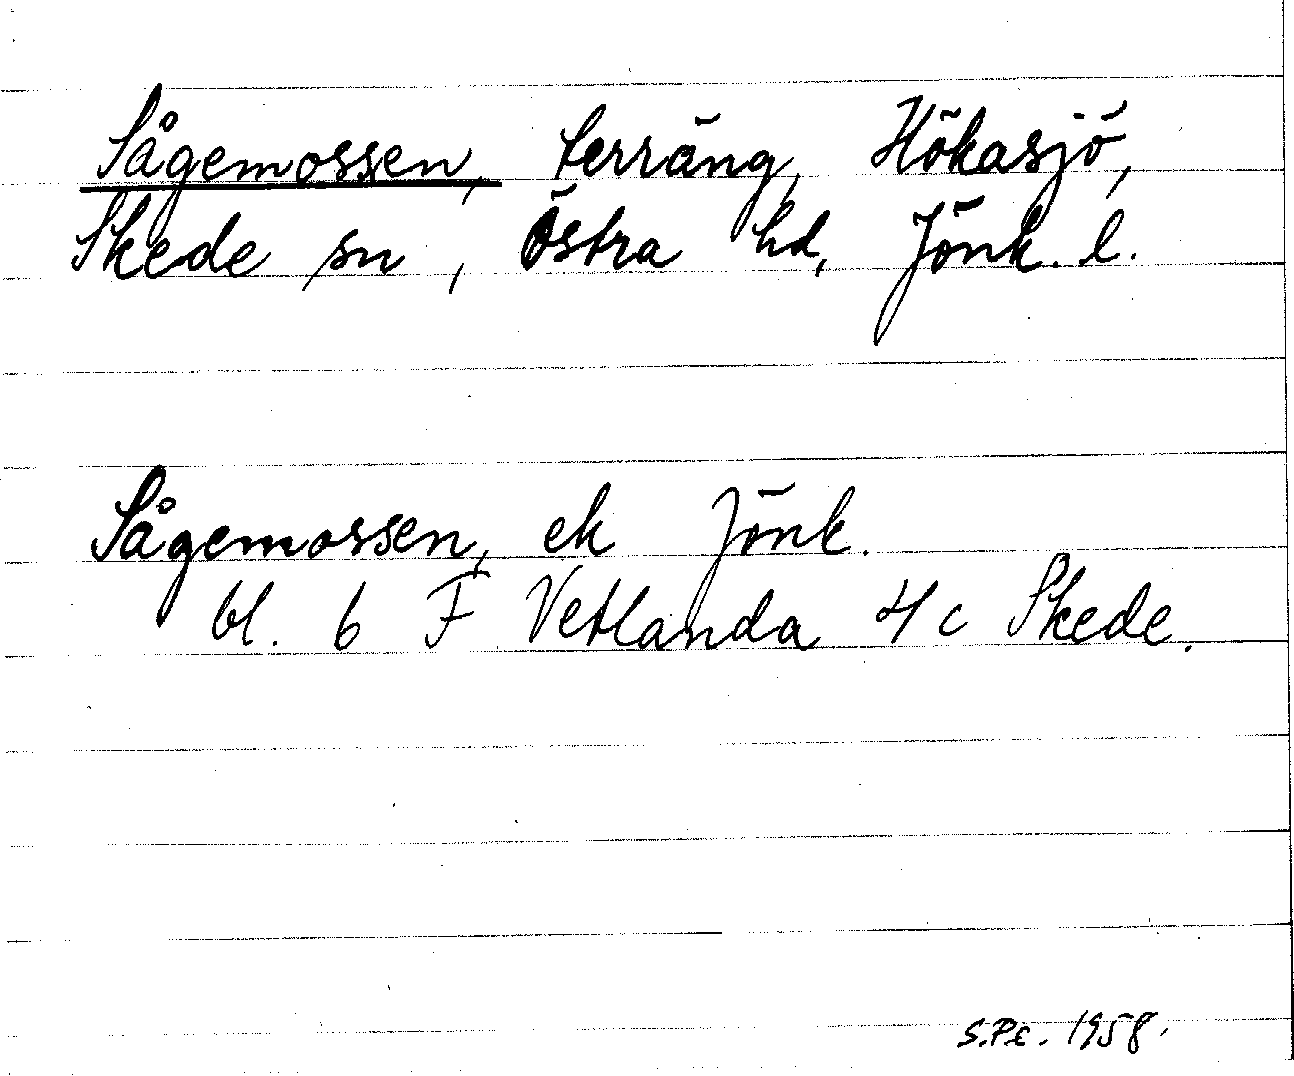 Sågemossen, terräng, Hökasjö,
Skede sn, Östra hd, Jönk. l.
Sågemossen, ek Jönk.
bl. 6 F Vetlanda 4c Skede.
S.Pe. 1958.